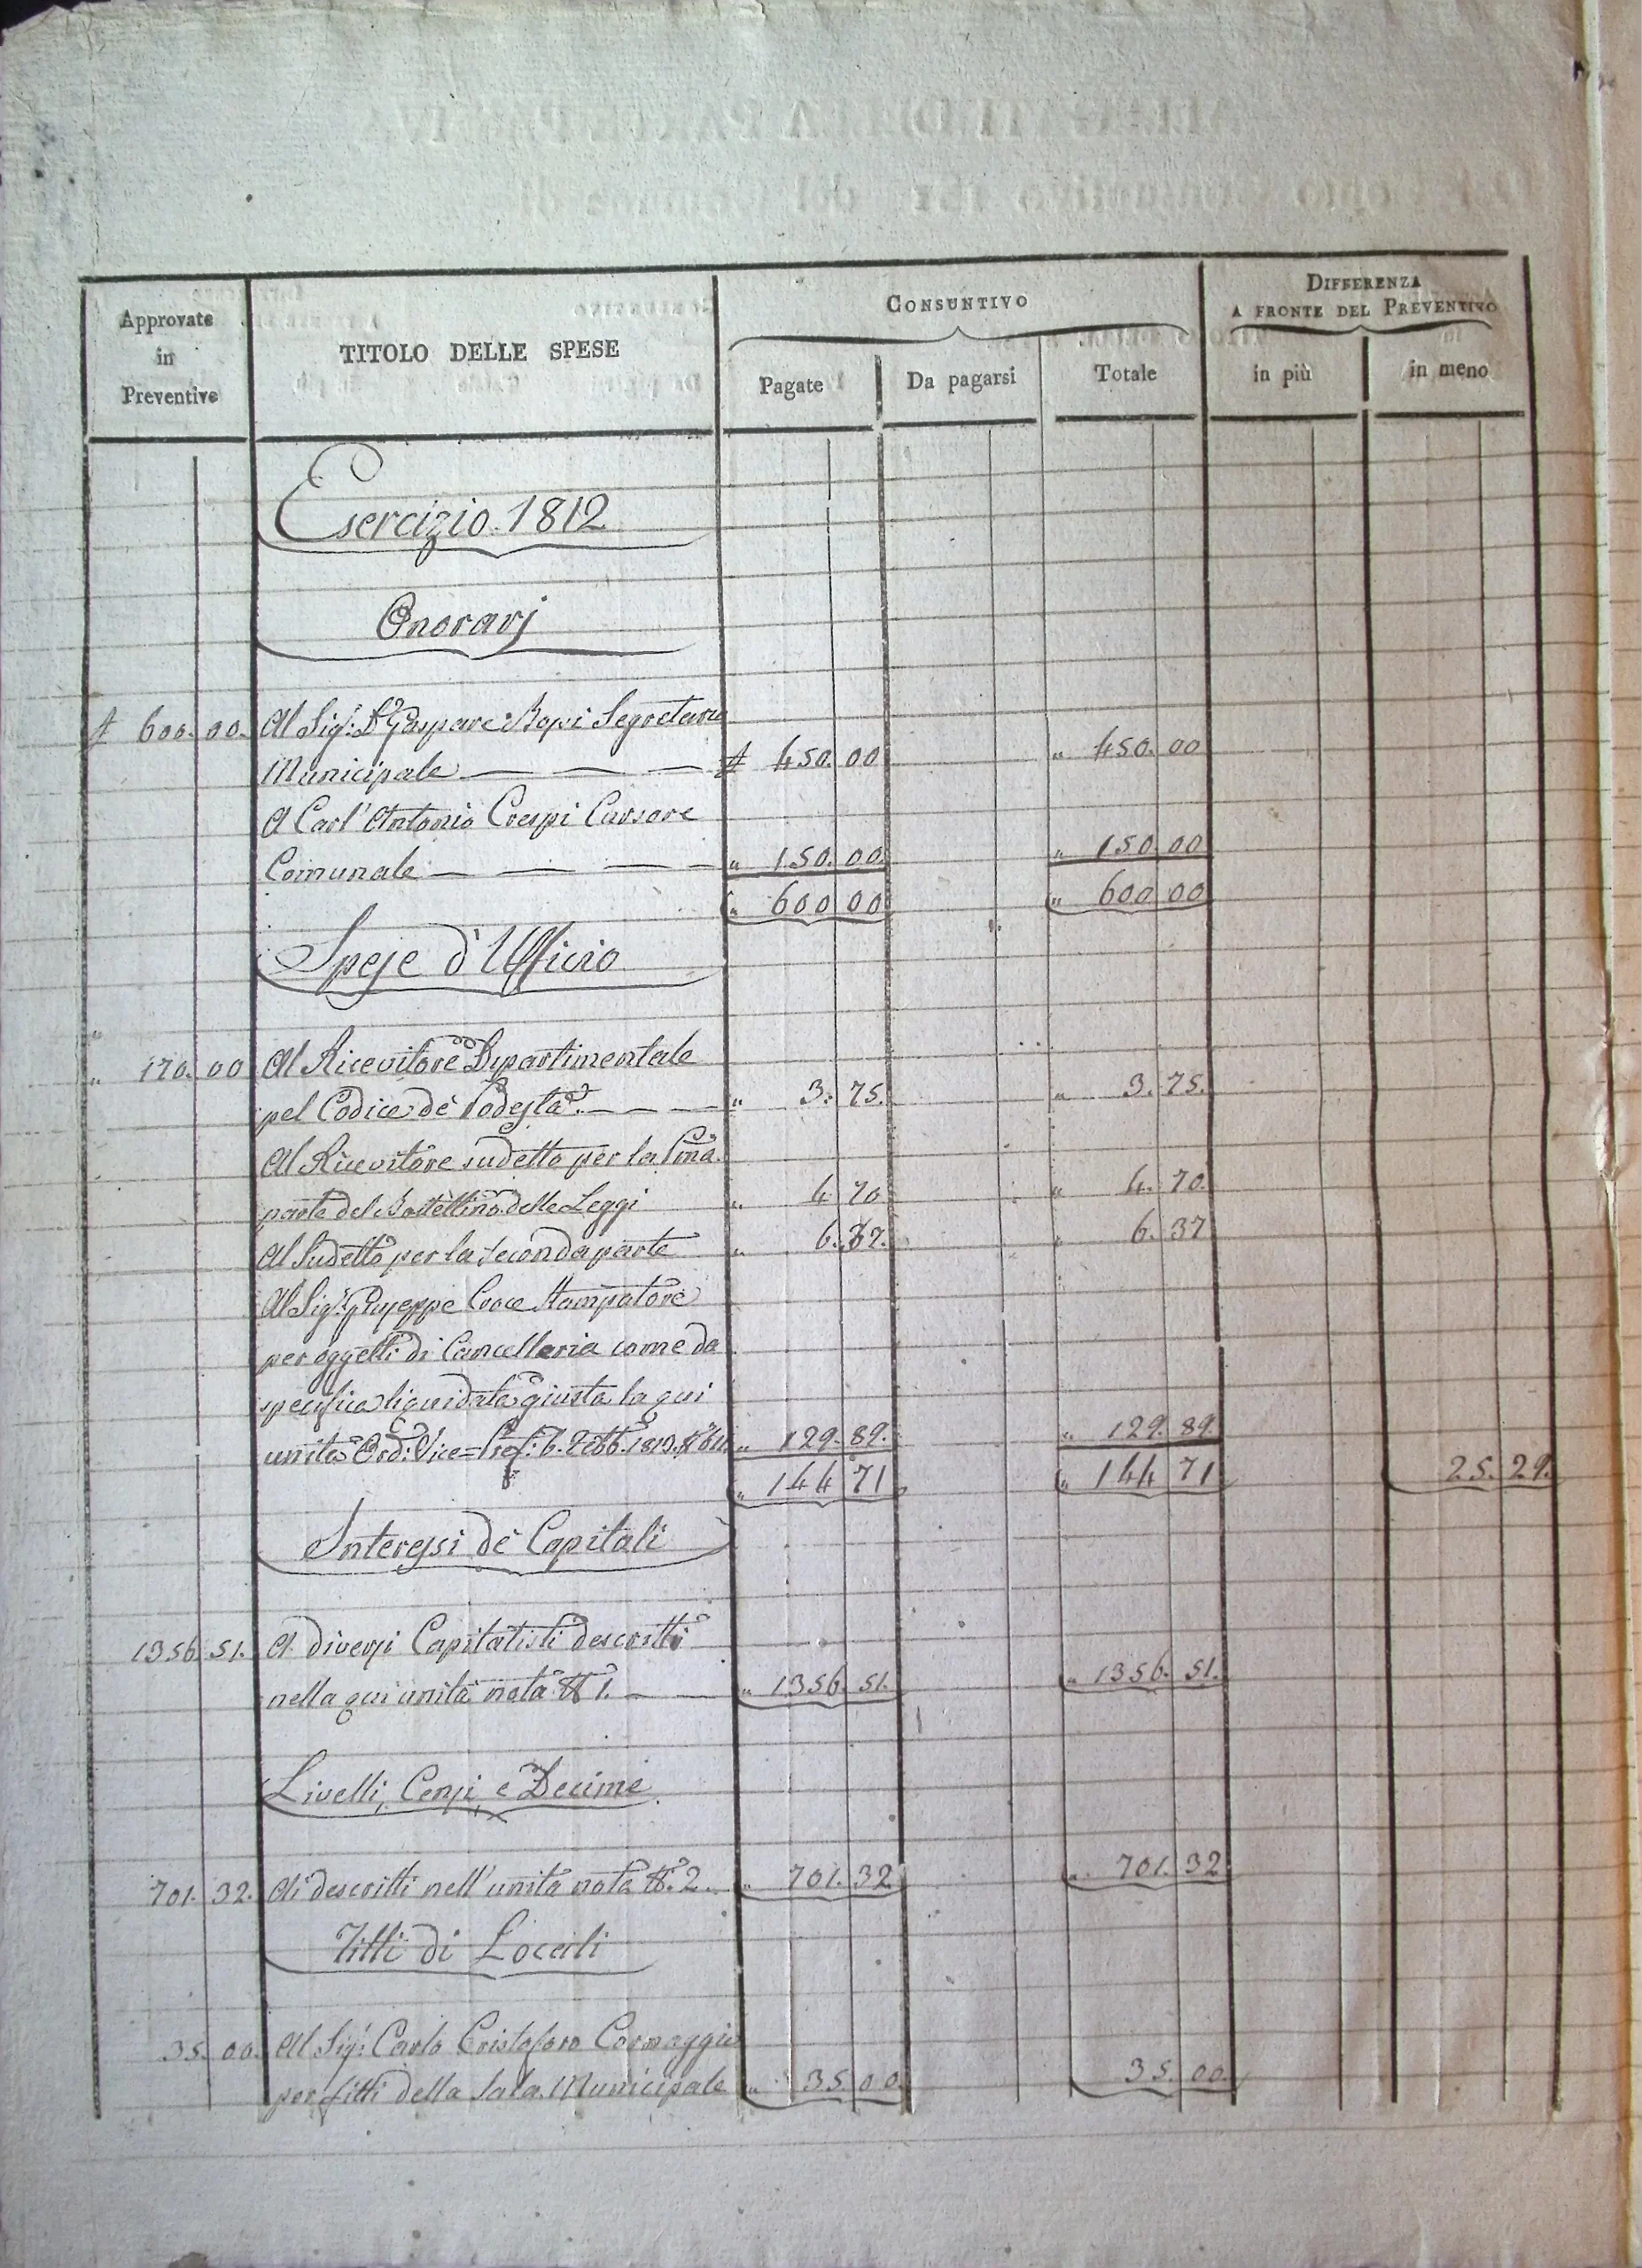 Approvate
in
Preventivo
TITOLO DELLE SPESE
CONSUNTIVO
DIFFERENZA
A FRONTE DEL PREVENTIVO
Pagate
Da pagarsi
Totale
in più
in meno
Esercizio 1812
Onorarj
600. 00. Al Sig.r Dr Gaspare Segretario
Municipale 450. 00 " 450. 00
A Carl' Antonio Crespi Cursore
Comunale " 150. 00. " 150. 00
" 600 00 " 600 00
Spese d'Ufficio
" 170. 00 Al Ricevitore Dipartimentale
pel Codice de' Podestà " 3. 75. " 3. 75.
Al Ricevitore sudetto per la Pma
parte del Bollettino delle Leggi " 4 70 " 4. 70
Al Sudetto per la seconda parte " 6. 37. " 6. 37
Al Sig.r Giuseppe Croce Stampatore
per oggetti di Cancelleria come da
specifica liquidata giusta la qui
unita Ord: Vice=Pref: 6. Febb. 1813. " 129. 89. " 129. 89.
" 144 71 " 144 71 25. 29.
Interessi de' Capitali
1356 51. A diversi Capitalisti descritti
nella qui unita nota N. 1. " 1356. 51. " 1356. 51.
Livelli, Censi, e Decime
701. 32. Ai descritti nell' unita nota N. 2 " 701. 32 " 701. 32
Fitti di Locali
35. 00. Al Sig.r Carlo Cristoforo Cornaggia
per fitti della Sala Municipale " 35. 00. 35. 00.